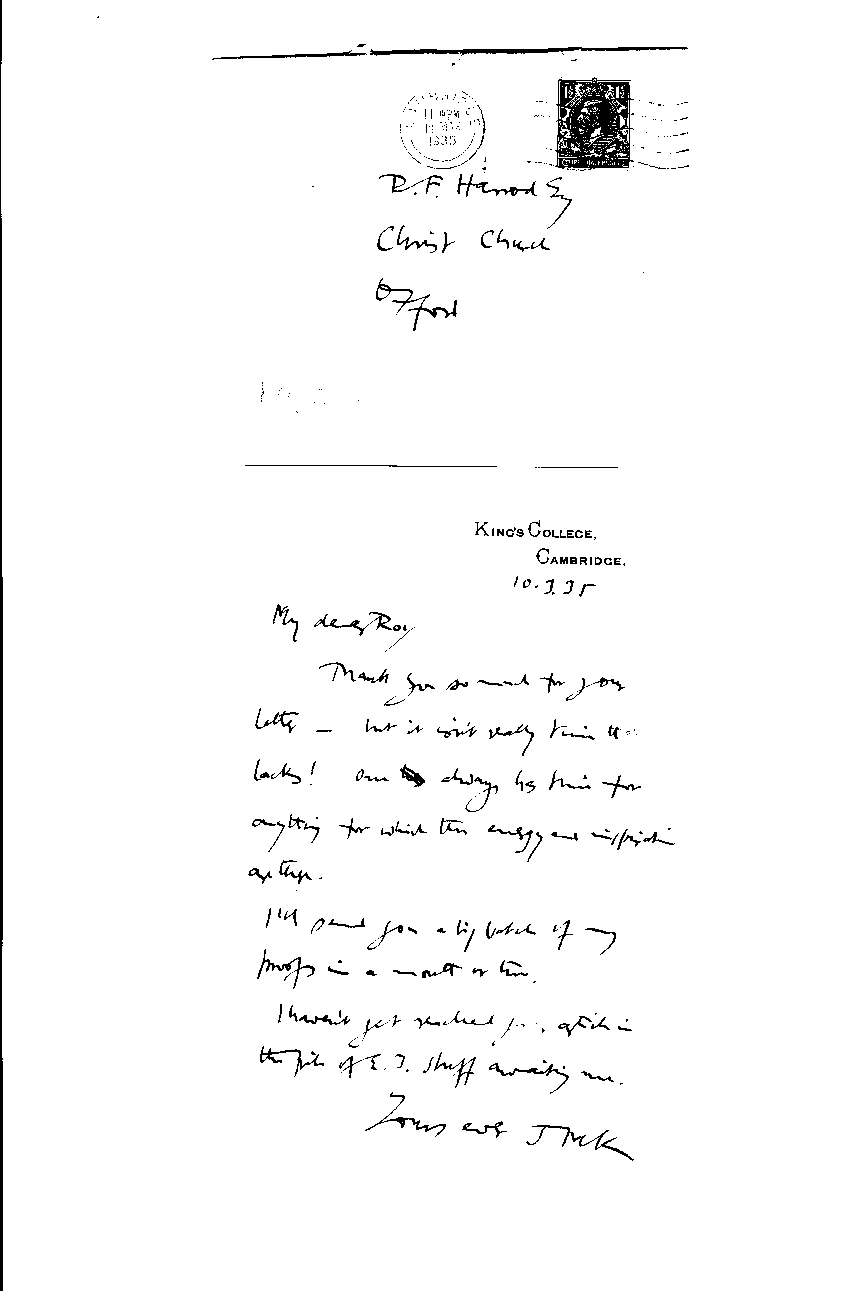 11 30PM
1935
R. F. Harrod Esq
Christ Church
Oxford
KING'S COLLEGE,
CAMBRIDGE.
10.3.35
My dear Roy
Thank you so much for your
letter – but it isn't really time tt
lacks! One always has time for
anything for which the energy and inspiration
are there.
I'll send you a big batch of my
proofs in a month or two.
I haven't yet reached your article in
the pile of E. J. stuff awaiting me.
Yours ever JMK